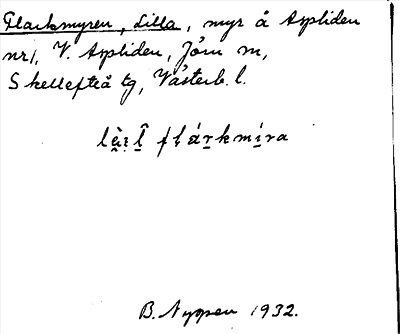 Flarkmyren, Lilla, myr å Aspliden
nr 1, V. Aspliden, Jörn sn,
Skellefteå tg, Västerb. l.
flárkmíra
B. Nygren 1932.